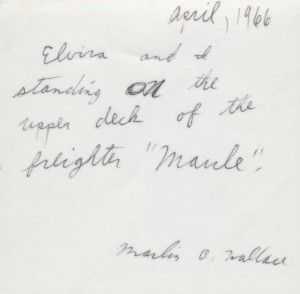 April, 1966
Elvira and I
standing on the
upper deck of the
freighter "Maule".
Marlin O. Wallace